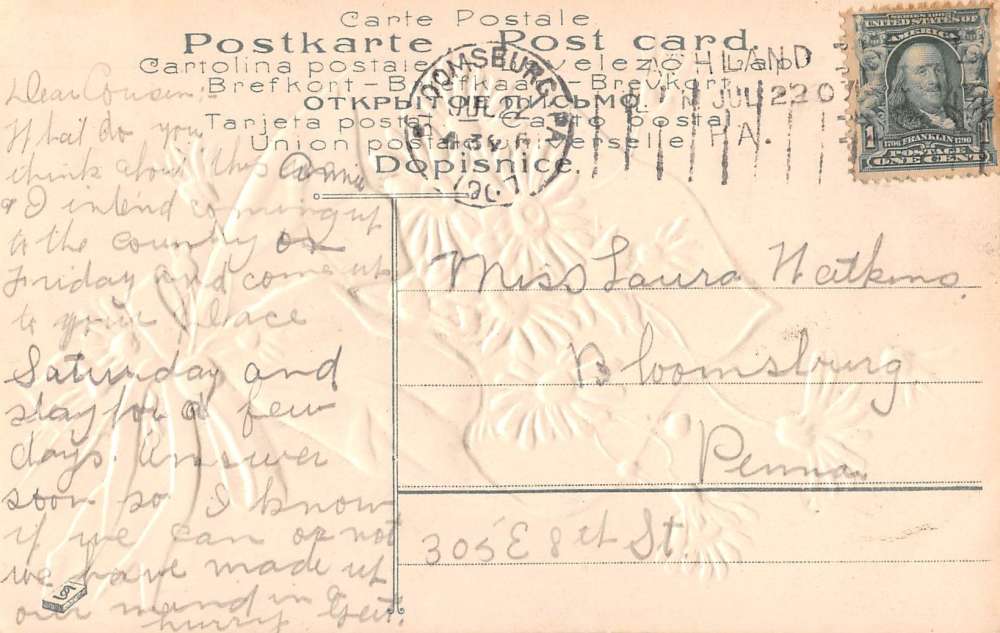 Carte Postale
Postkarte Post card.
Cartolina postale
Brefkort - Brevkort
ОТКРЫТОЕ ПИСЬМО.
Tarjeta postal
Union postale universelle
Dopisnice.
BLOOMSBURG, PA.
JUL 22
1907
ASHLAND
JUL 22
PA.
SERIES 1902
UNITED STATES OF AMERICA
1706 FRANKLIN 1790
POSTAGE
1 ONE CENT
Dear Cousin:-
What do you
think about this Annie
& I intend coming up
to the country on
Friday and come up
to your place
Saturday and
stay for a few
days. Answer
soon so I know
if we can or not
we have made up
our mind in a
hurry Gert.
Miss Laura Watkins.
Bloomsburg.
Penna.
305 E 8th St.